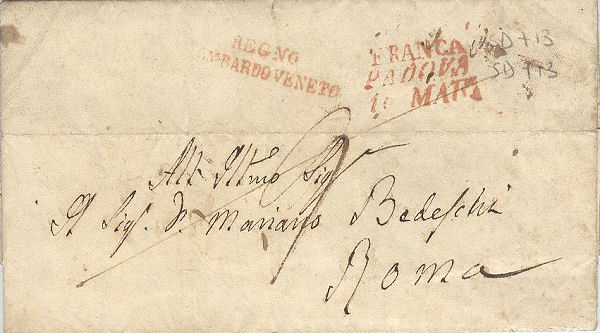 REGNO
LOMBARDO VENETO
FRANCA
PADOVA
MAR
SD + 13
SD + 13
All' Illmo Sigr
Il Sigr. Dr Mariano Bedeschi
Roma